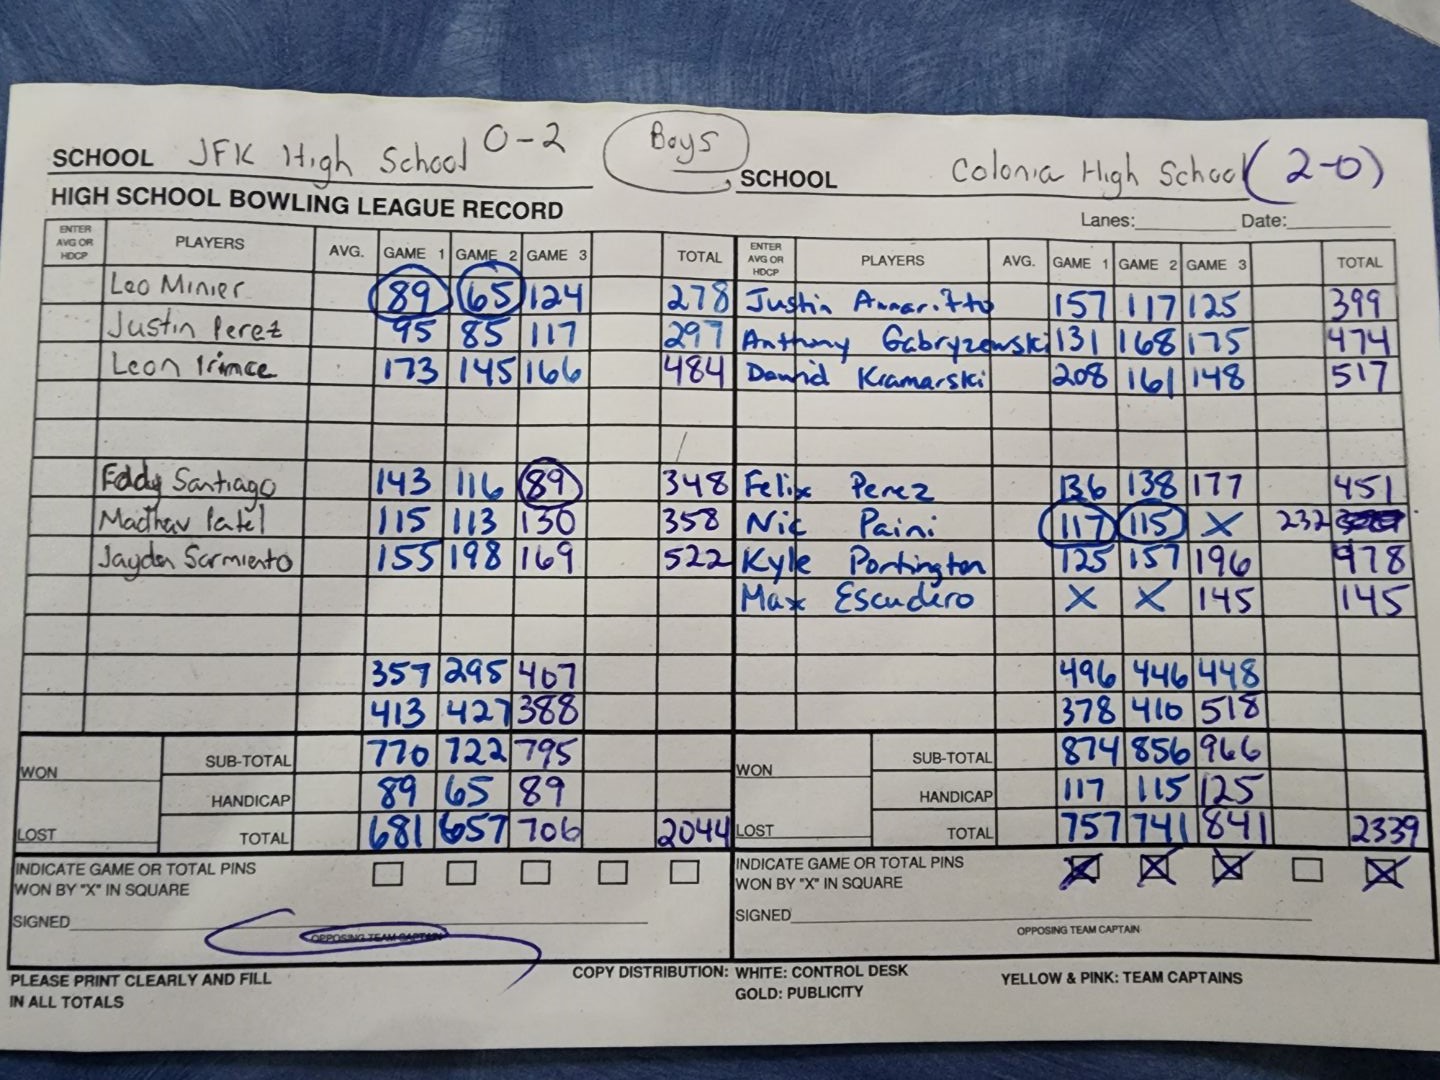 SCHOOL JFK High School 0-2 Boys SCHOOL Colonia High School (2-0)
HIGH SCHOOL BOWLING LEAGUE RECORD Lanes: Date:
ENTER AVG OR HDCP PLAYERS AVG. GAME 1 GAME 2 GAME 3 TOTAL ENTER AVG OR HDCP PLAYERS AVG. GAME 1 GAME 2 GAME 3 TOTAL
Leo Minier 89 65 124 278 Justin 157 117 125 399
Justin Perez 95 85 117 297 Anthony Gabryzewski 131 168 175 474
Leon 173 145 166 484 Dawid Kramarski 208 161 148 517
Eddy Santiago 143 116 89 348 Felix Perez 136 138 177 451
Madhav Patel 115 113 130 358 Nic Paini 117 115 X 232
Jayden Sarmiento 155 198 169 522 Kyle Pontington 125 157 196 478
Max Escudero X X 145 145
357 295 407 496 446 448
413 427 388 378 410 518
WON SUB-TOTAL 770 722 795 WON SUB-TOTAL 874 856 966
HANDICAP 89 65 89 HANDICAP 117 115 125
LOST TOTAL 681 657 706 2044 LOST TOTAL 757 741 841 2339
INDICATE GAME OR TOTAL PINS INDICATE GAME OR TOTAL PINS
WON BY "X" IN SQUARE WON BY "X" IN SQUARE X X X X
SIGNED SIGNED
OPPOSING TEAM CAPTAIN OPPOSING TEAM CAPTAIN
PLEASE PRINT CLEARLY AND FILL COPY DISTRIBUTION: WHITE: CONTROL DESK YELLOW & PINK: TEAM CAPTAINS
IN ALL TOTALS GOLD: PUBLICITY